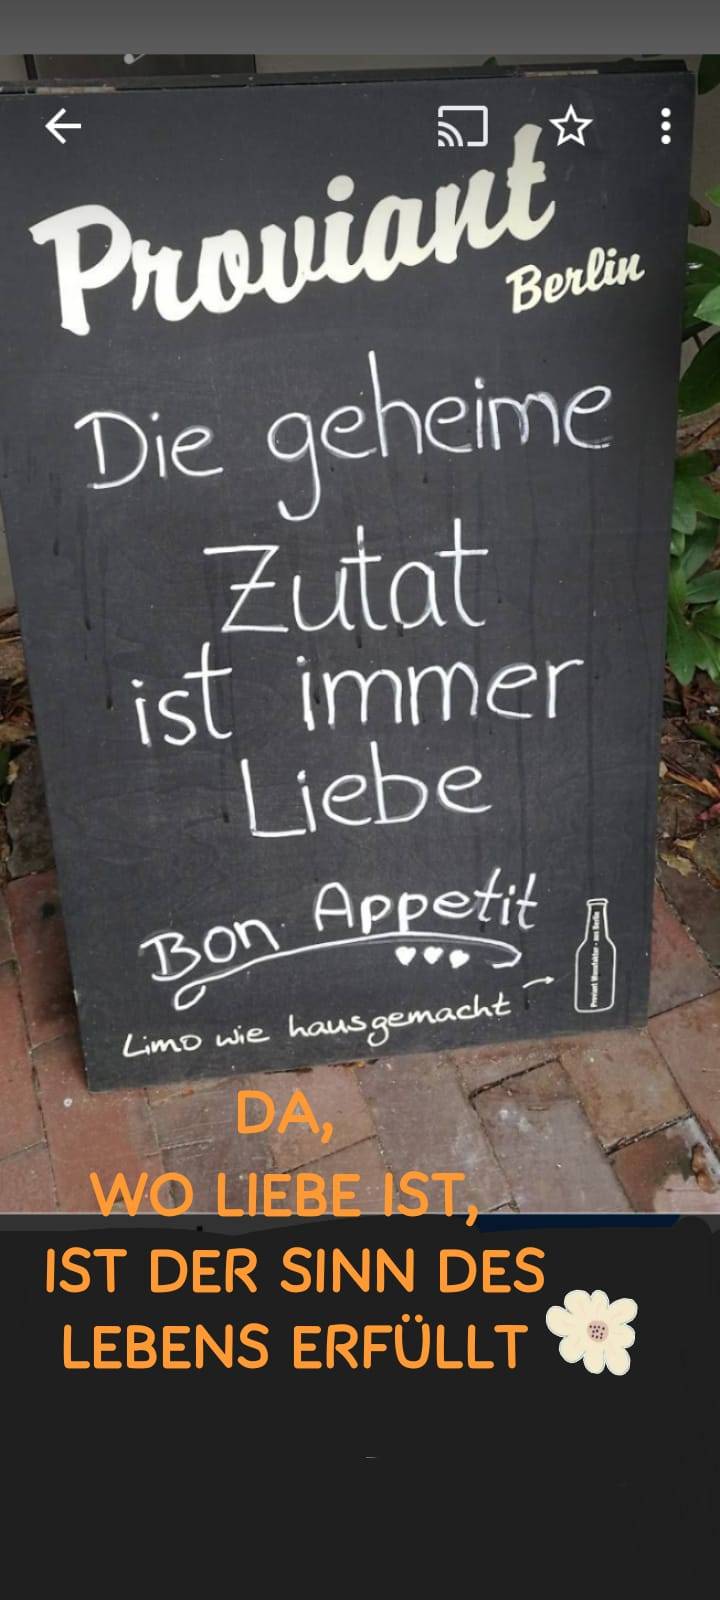 Proviant
Berlin
Die geheime
Zutat
ist immer
Liebe
Bon Appetit
Limo wie hausgemacht
Proviant Manufaktur - aus Berlin
DA,
WO LIEBE IST,
IST DER SINN DES
LEBENS ERFÜLLT